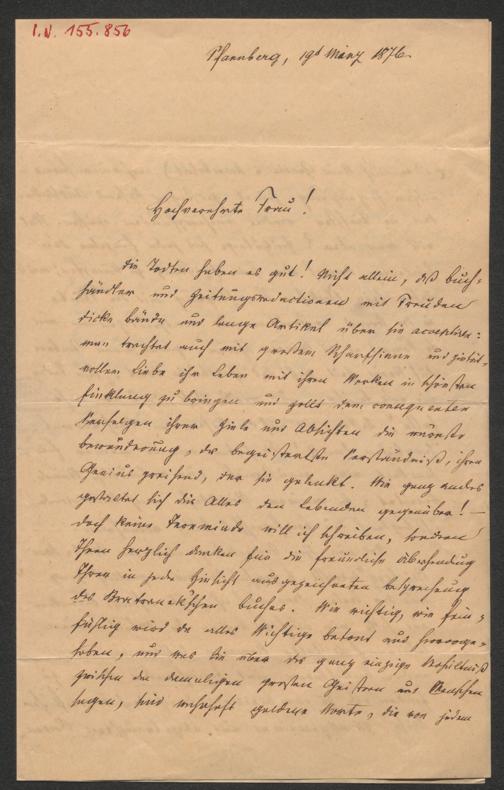 I.N. 155.856
Pfannberg, 19d März 1876.
Hochverehrte Frau!
Die Todten haben es gut! Nicht allein, daß Buch-
händler und Zeitungsredactionen mit Freuden
dicke Bände und lange Artikel über sie acceptiren:
man trachtet auch mit großem Scharfsinne und pietät-
vollen Liebe ihr Leben mit ihren Werken in schönsten
Einklang zu bringen und zollt dem consequenten
Verfolgen ihrer Ziele und Absichten die wärmste
Bewunderung, das begeistertste Verständniß, ihren
Genius preisend, der sie gelenkt. Wie ganz anders
gestaltet sich dies Alles den Lebenden gegenüber! —
doch keine Jeremiade will ich schreiben, sondern
Ihnen herzlich danken für die freundliche Übersendung
Ihrer in jeder Hinsicht ausgezeichneten Besprechung
des Bratranek'schen Buches. Wie richtig, wie fein-
fühlig wird da alles Wichtige betont und hervorge-
hoben, und was Sie über das ganz einzige Verhältniß
zwischen den damaligen großen Geistern und Menschen
sagen, sind wahrhaft goldene Worte, die von jedem